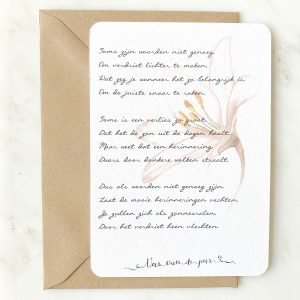 Soms zijn woorden niet genoeg,
Om verdriet lichter te maken.
Wat zeg je wanneer het zo belangrijk is,
Om de juiste snaar te raken.
Soms is een verlies zo groot,
Dat het de zon uit de dagen haalt.
Maar weet dat een herinnering,
Dwars door donkere wolken straalt.
Dus als woorden niet genoeg zijn,
Laat de mooie herinneringen vechten.
Ze zullen zich als zonnestralen,
Door het verdriet heen vlechten.
Vers van de pers